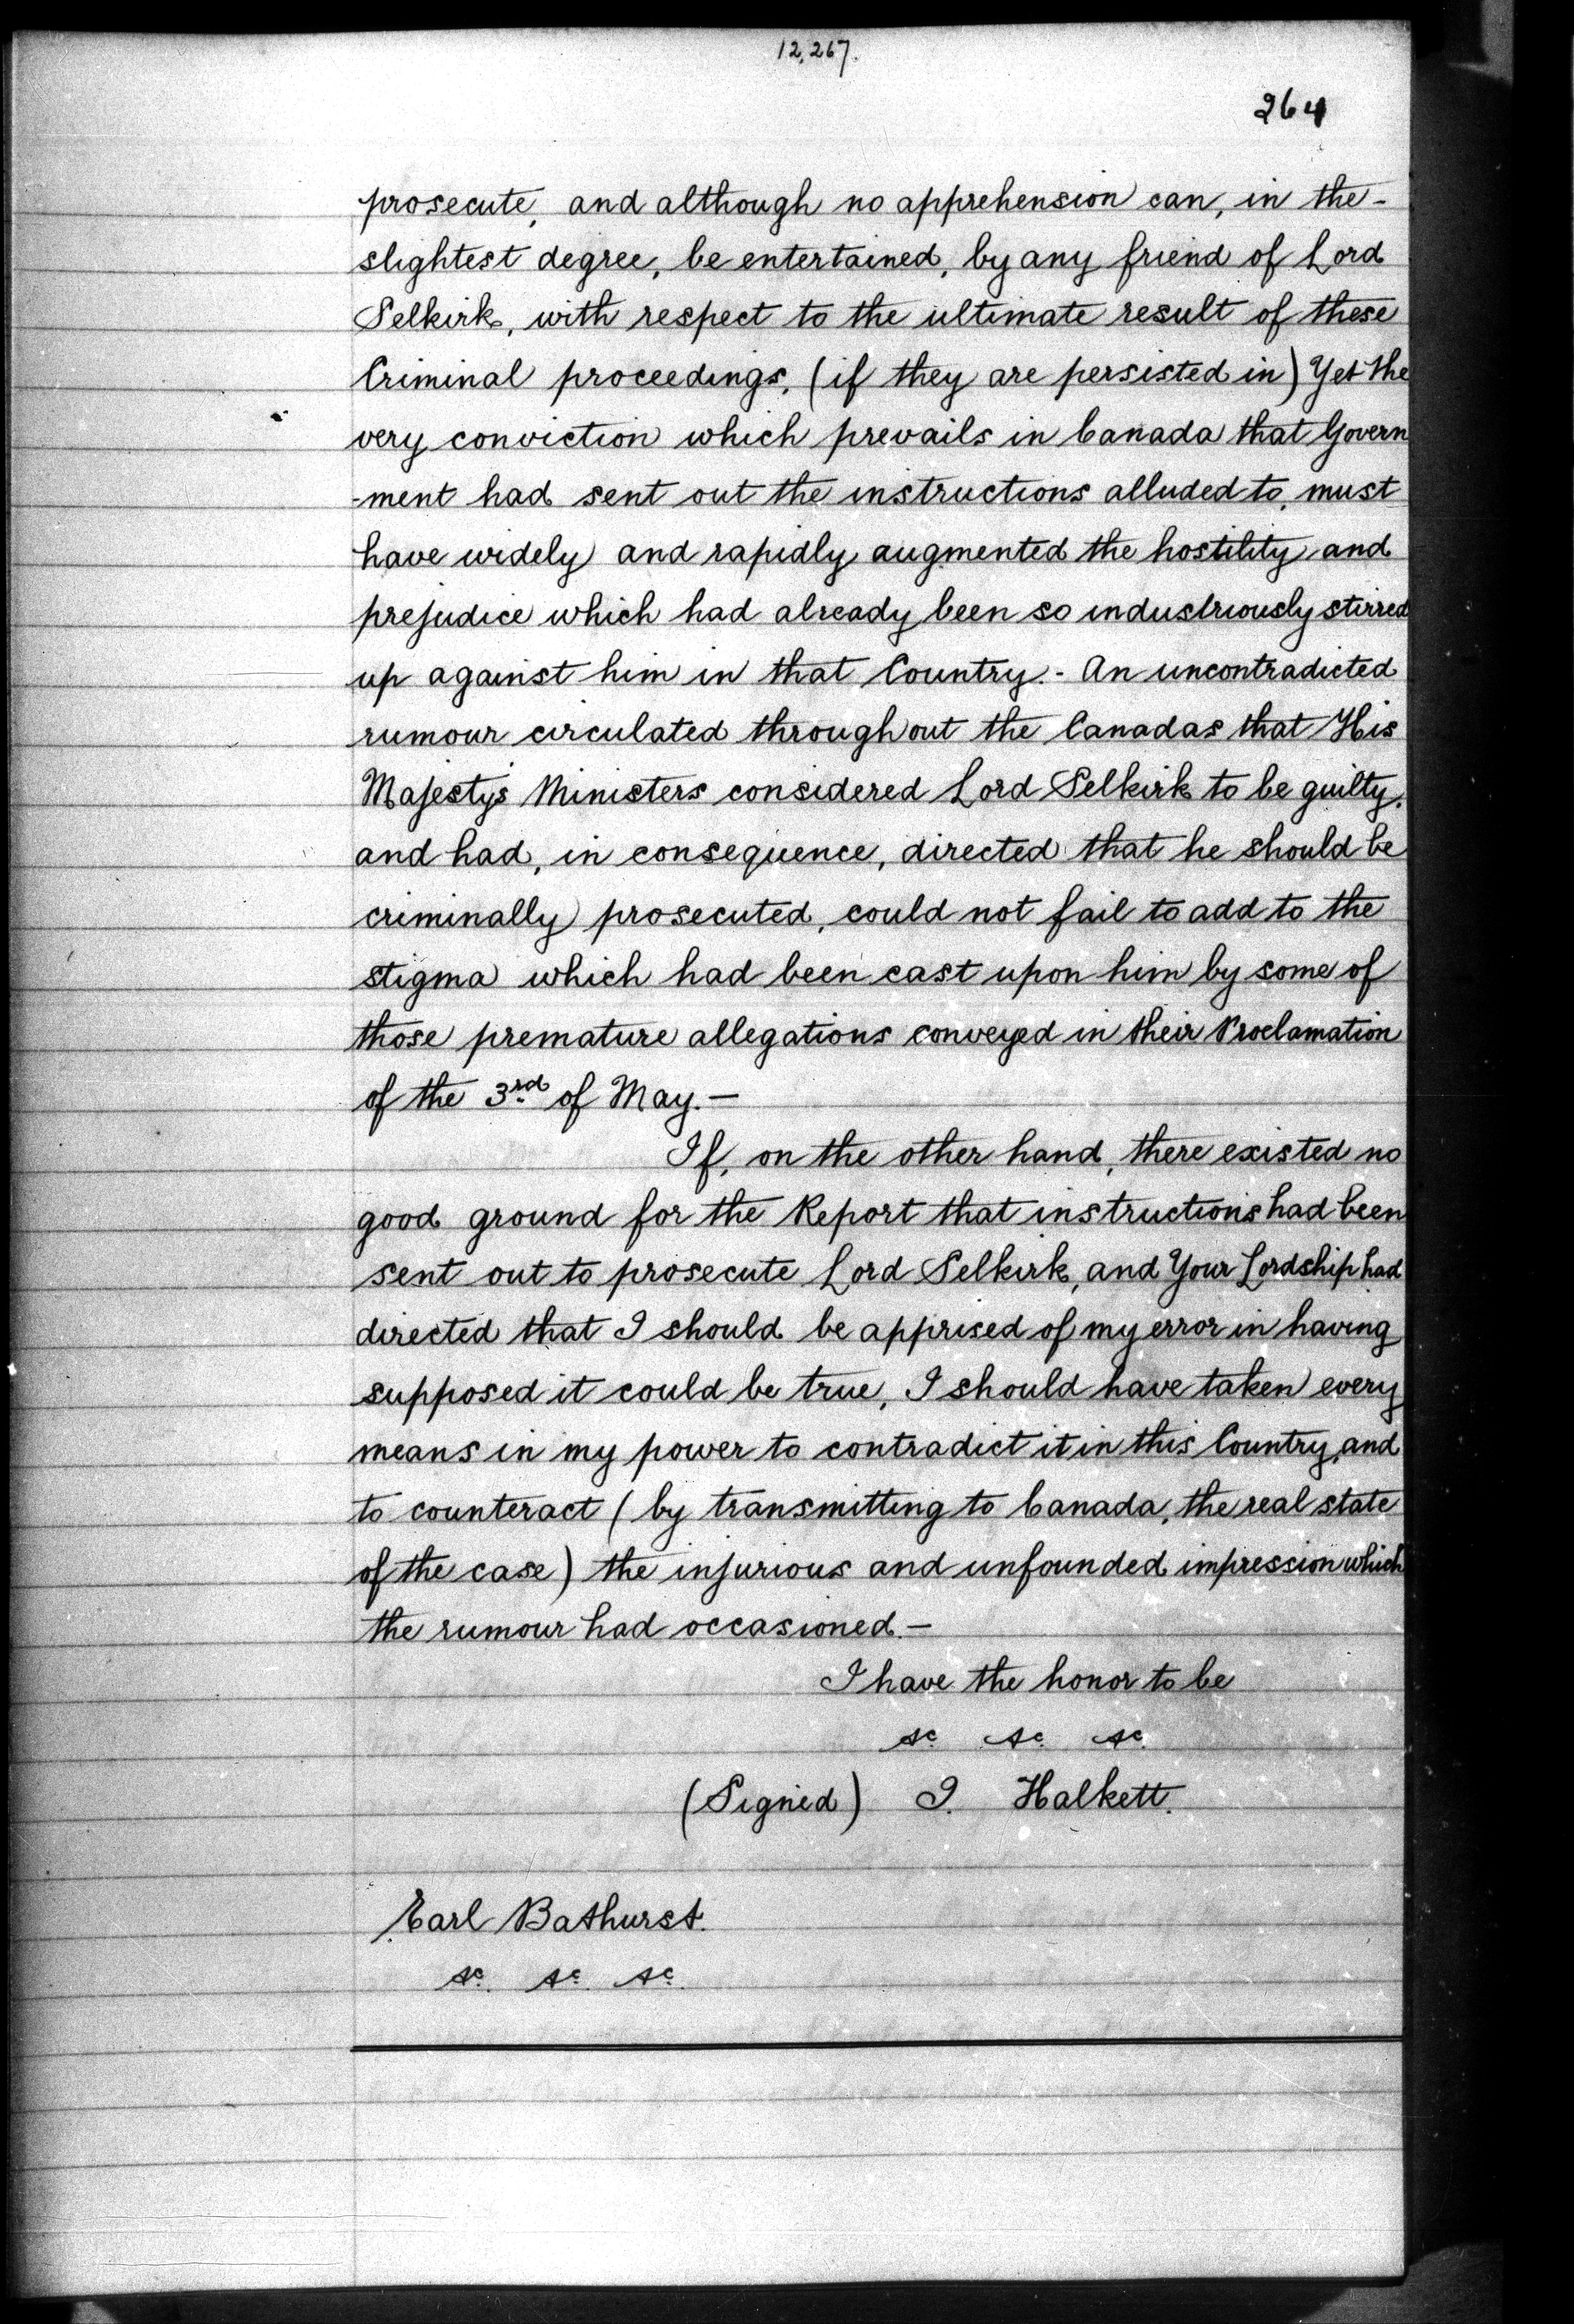 12,267.
264
prosecute, and although no apprehension can, in the-
slightest degree, be entertained, by any friend of Lord
Selkirk, with respect to the ultimate result of these
Criminal proceedings, (if they are persisted in) Yet the
very conviction which prevails in Canada that Govern
-ment had sent out the instructions alluded to, must
have widely and rapidly augmented the hostility and
prejudice which had already been so industriously stirred
up against him in that Country.- An uncontradicted
rumour circulated throughout the Canadas that His
Majesty's Ministers considered Lord Selkirk to be guilty,
and had, in consequence, directed that he should be
criminally prosecuted, could not fail to add to the
stigma which had been cast upon him by some of
those premature allegations conveyed in their Proclamation
of the 3rd of May.—
If, on the other hand, there existed no
good ground for the Report that instructions had been
sent out to prosecute Lord Selkirk, and Your Lordship had
directed that I should be apprised of my error in having
supposed it could be true, I should have taken every
means in my power to contradict it in this Country, and
to counteract (by transmitting to Canada, the real state
of the case) the injurious and unfounded impression which
the rumour had occasioned.—
I have the honor to be
&c. &c. &c.
(Signed) J. Halkett.
Earl Bathurst.
&c. &c. &c.